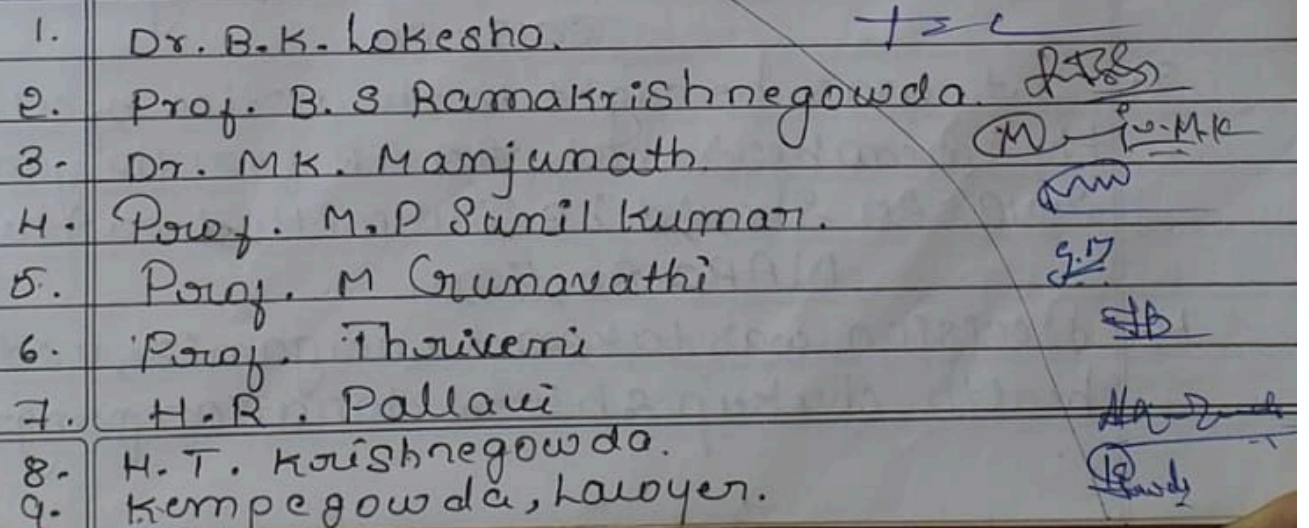 1. Dr. B.K. Lokesha.
2. Prof. B.S Ramakrishnegowda.
3. Dr. MK. Manjunath
4. Prof. M.P Sunil kumar.
5. Prof. M Gunavathi
6. Prof. Thriveni
7. H.R. Pallavi
8. H.T. Krishnegowda.
9. Kempegowda, Lawyer.